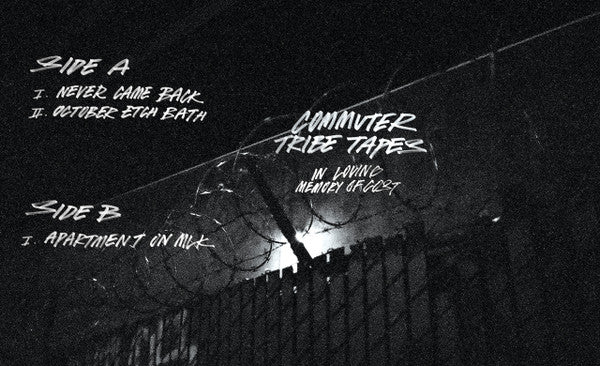 SIDE A
I. NEVER CAME BACK
II. OCTOBER ETCH BATH
COMMUTER
TRIBE TAPES
IN LOVING
MEMORY OF
SIDE B
I. APARTMENT ON MLK